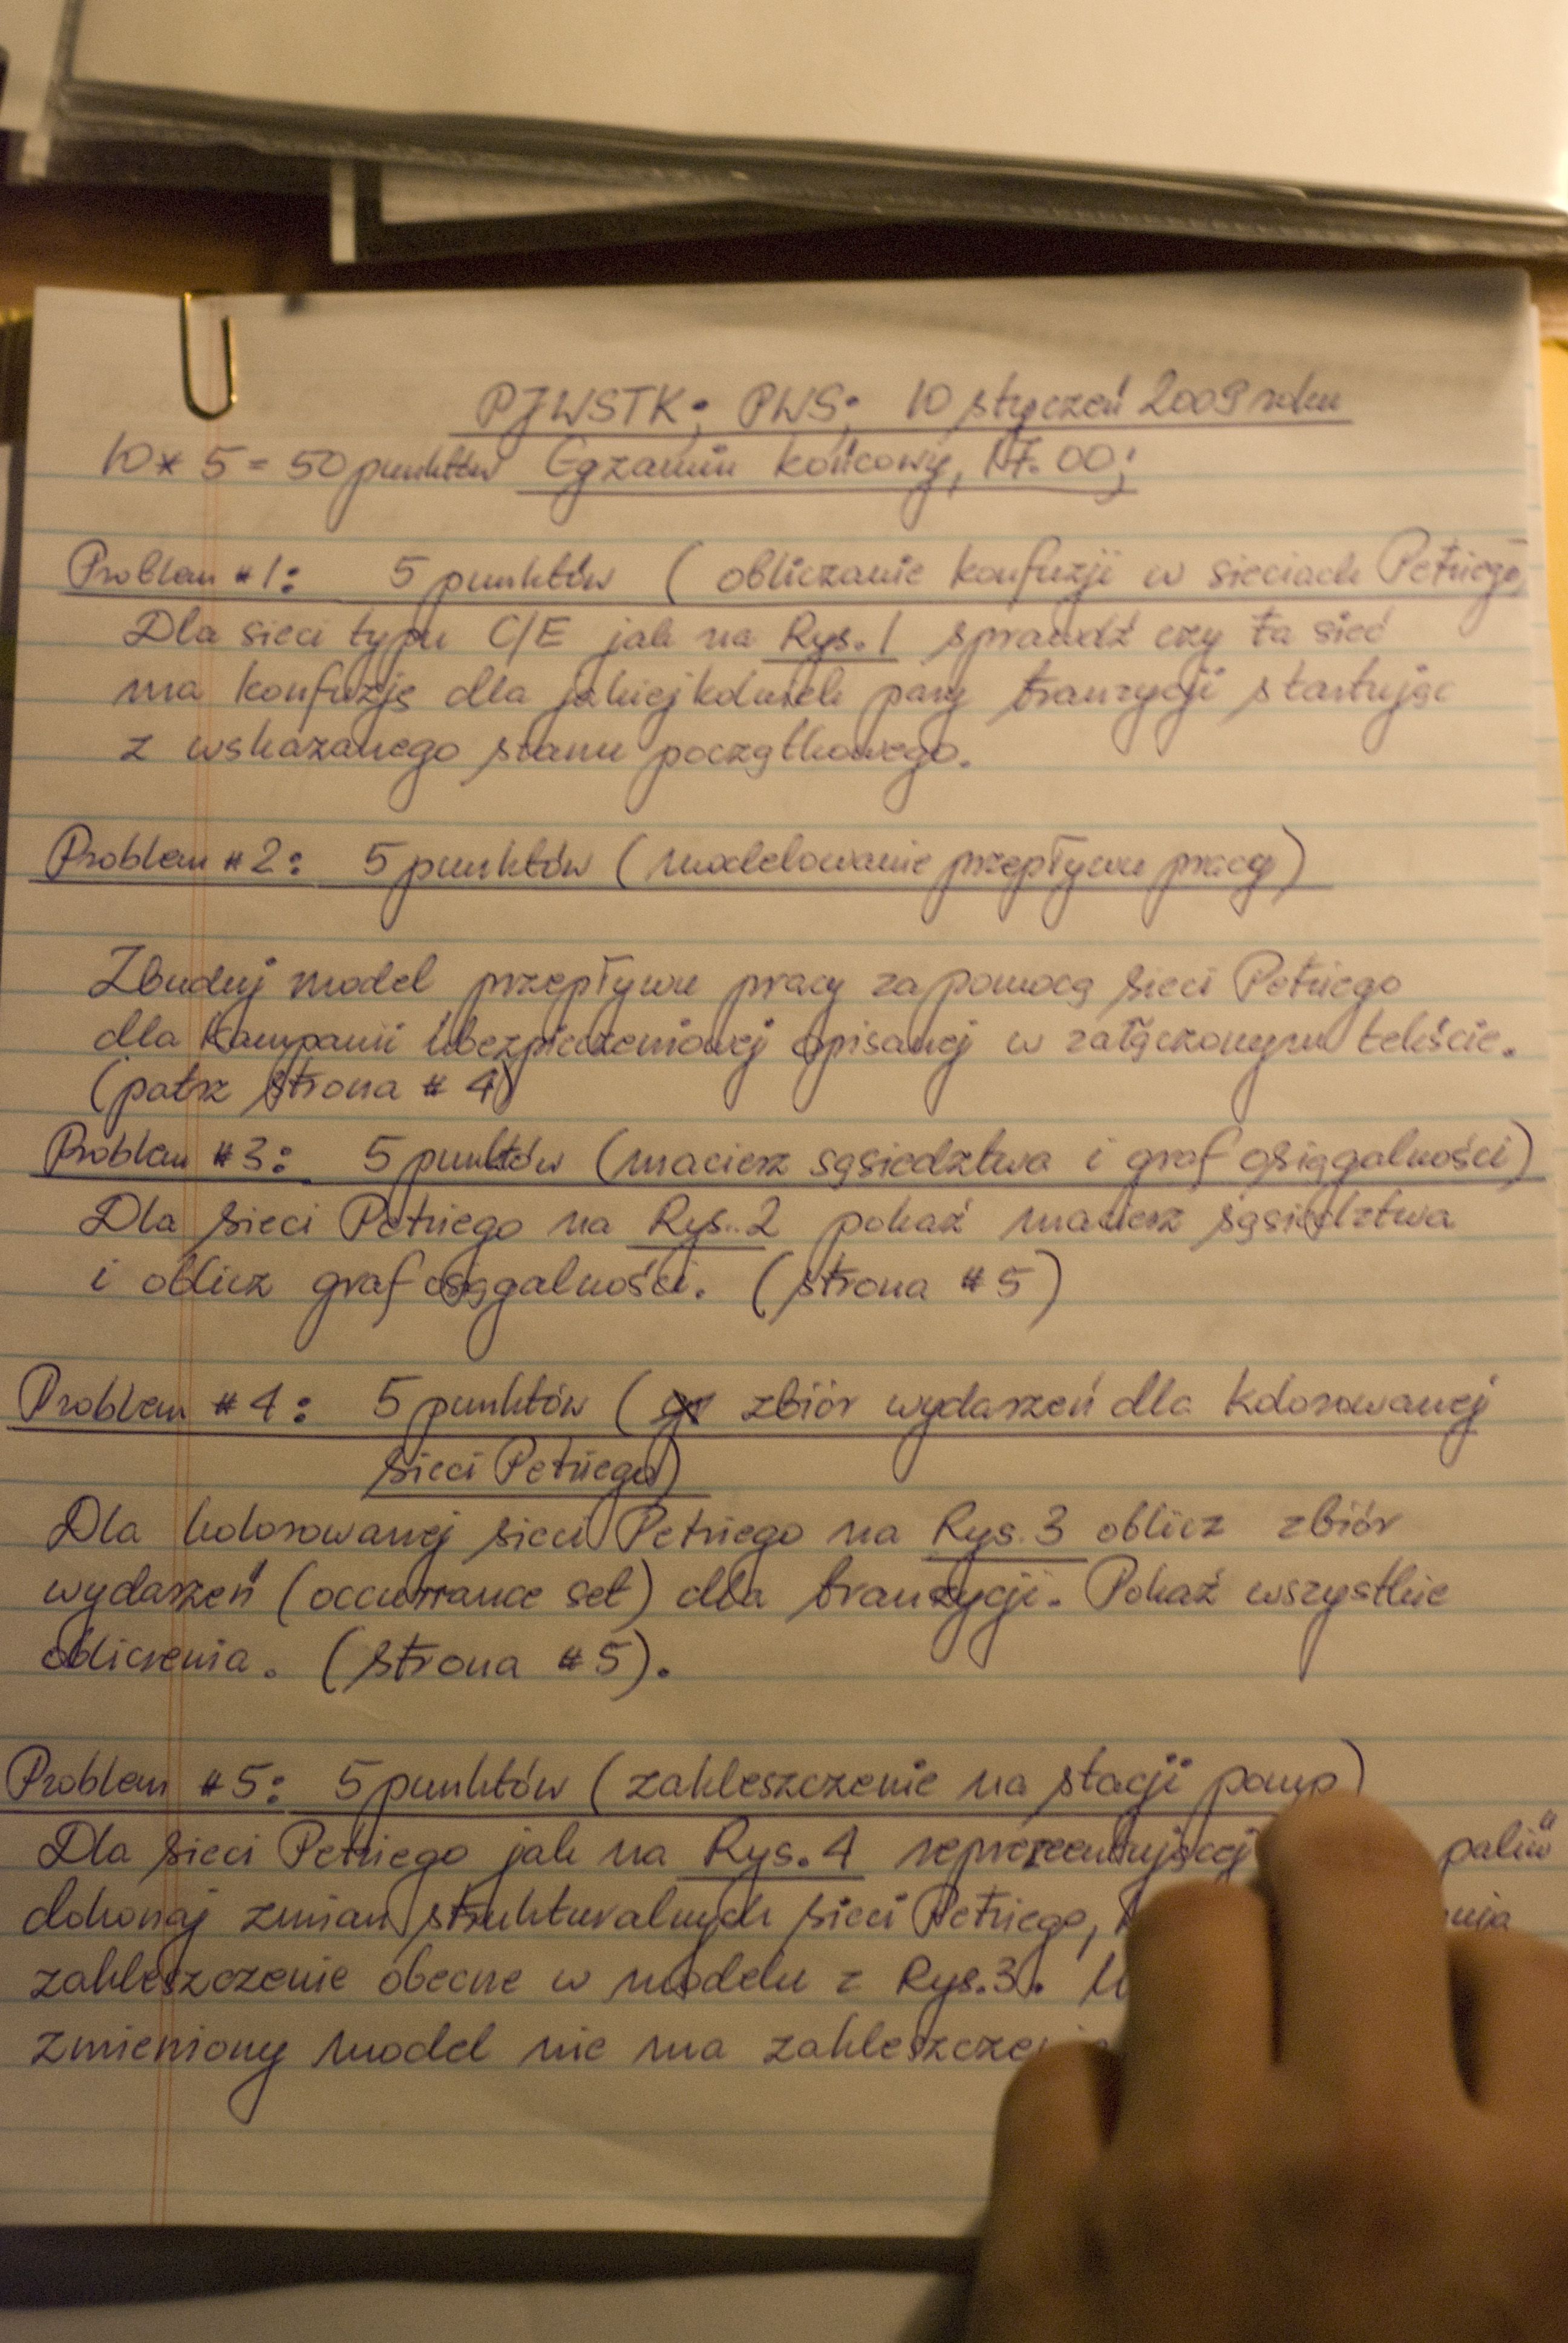 PJWSTK; PWS; 10 styczeń 2009 roku
10 * 5 = 50 punktów Egzamin końcowy, NT. 00;
Problem #1: 5 punktów (obliczanie konfuzji w sieciach Petriego)
Dla sieci typu C/E jak na Rys. 1 sprawdź czy ta sieć
ma konfuzję dla jakiejkolwiek pary tranzycji startując
z wskazanego stanu początkowego.
Problem #2: 5 punktów (modelowanie przepływu pracy)
Zbuduj model przepływu pracy za pomocą sieci Petriego
dla kampanii ubezpieczeniowej opisanej w załączonym tekście.
(patrz strona #4)
Problem #3: 5 punktów (macierz sąsiedztwa i graf osiągalności)
Dla sieci Petriego na Rys. 2 pokaż macierz sąsiedztwa
i oblicz graf osiągalności. (strona #5)
Problem #4: 5 punktów (zbiór wydarzeń dla kolorowanej
sieci Petriego)
Dla kolorowanej sieci Petriego na Rys. 3 oblicz zbiór
wydarzeń (occurrance set) dla tranzycji. Pokaż wszystkie
obliczenia. (strona #5).
Problem #5: 5 punktów (zakleszczenie na stacji pomp)
Dla sieci Petriego jak na Rys. 4 reprezentującej paliw
dokonaj zmian strukturalnych sieci Petriego,
zakleszczenie obecne w modelu z Rys. 3.
zmieniony model nie ma